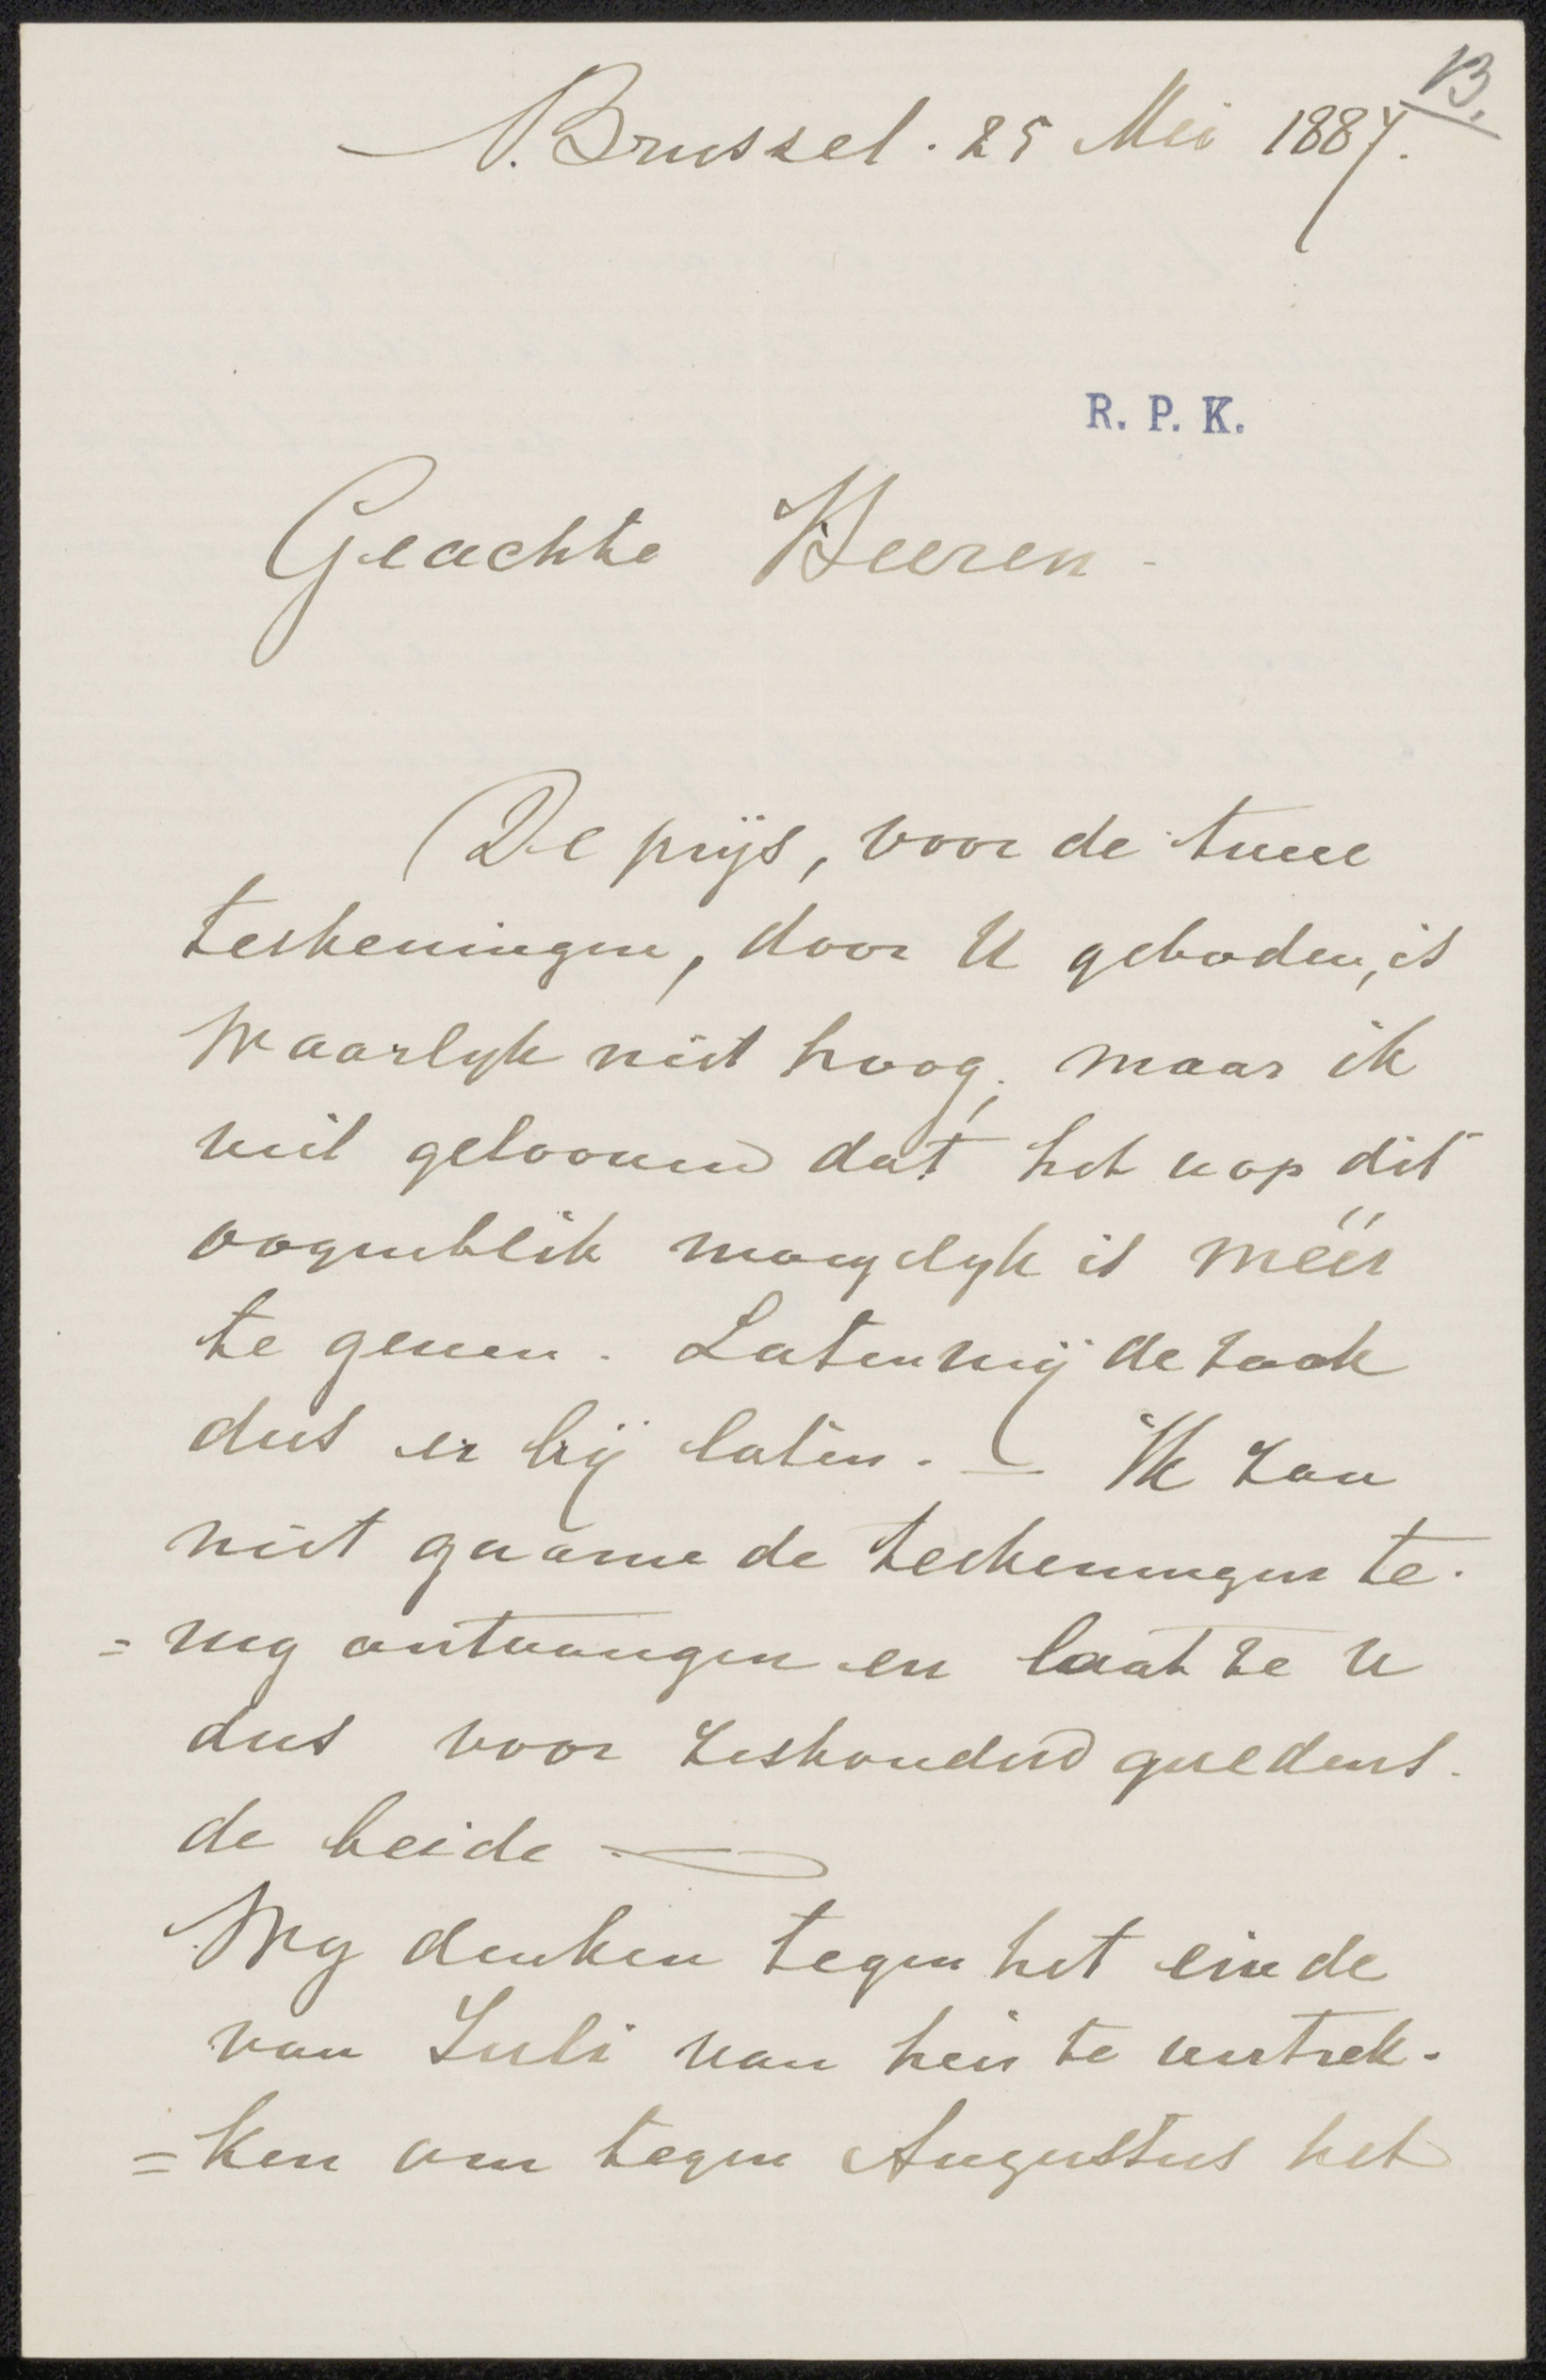 13.
N. Brussel. 25 Mei 1887.
R. P. K.
Geachte Heeren -
De prijs, voor de twee
teekeningen, door U geboden, is
Waarlyk niet hoog; maar ik
wil gelooven dat het u op dit
oogenblik moeyelyk is méér
te geven. Laten wij de zaak
dus er bij laten. — Ik zou
niet gaarne de teekeningen te-
=rug ontvangen en laat ze u
dus voor zeshonderd guldens.
de beide —
Wy denken tegen het einde
van Juli van hier te vertrek-
=ken om tegen Augustus het